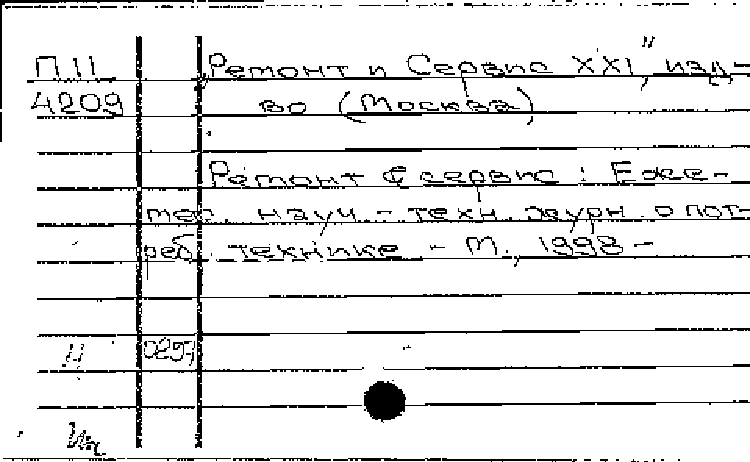 П11 „Ремонт и Сервис XXI", изд-
4209 во (Москва)
Ремонт & сервис : Еже-
мес. науч.-техн. журн. о пот-
реб. технике - М., 1998 -
Н